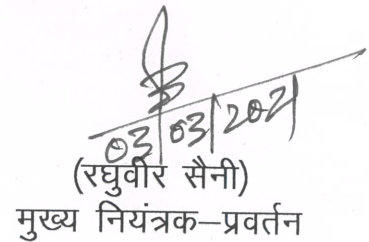 03/03/2021
(रघुवीर सैनी)
मुख्य नियंत्रक–प्रवर्तन